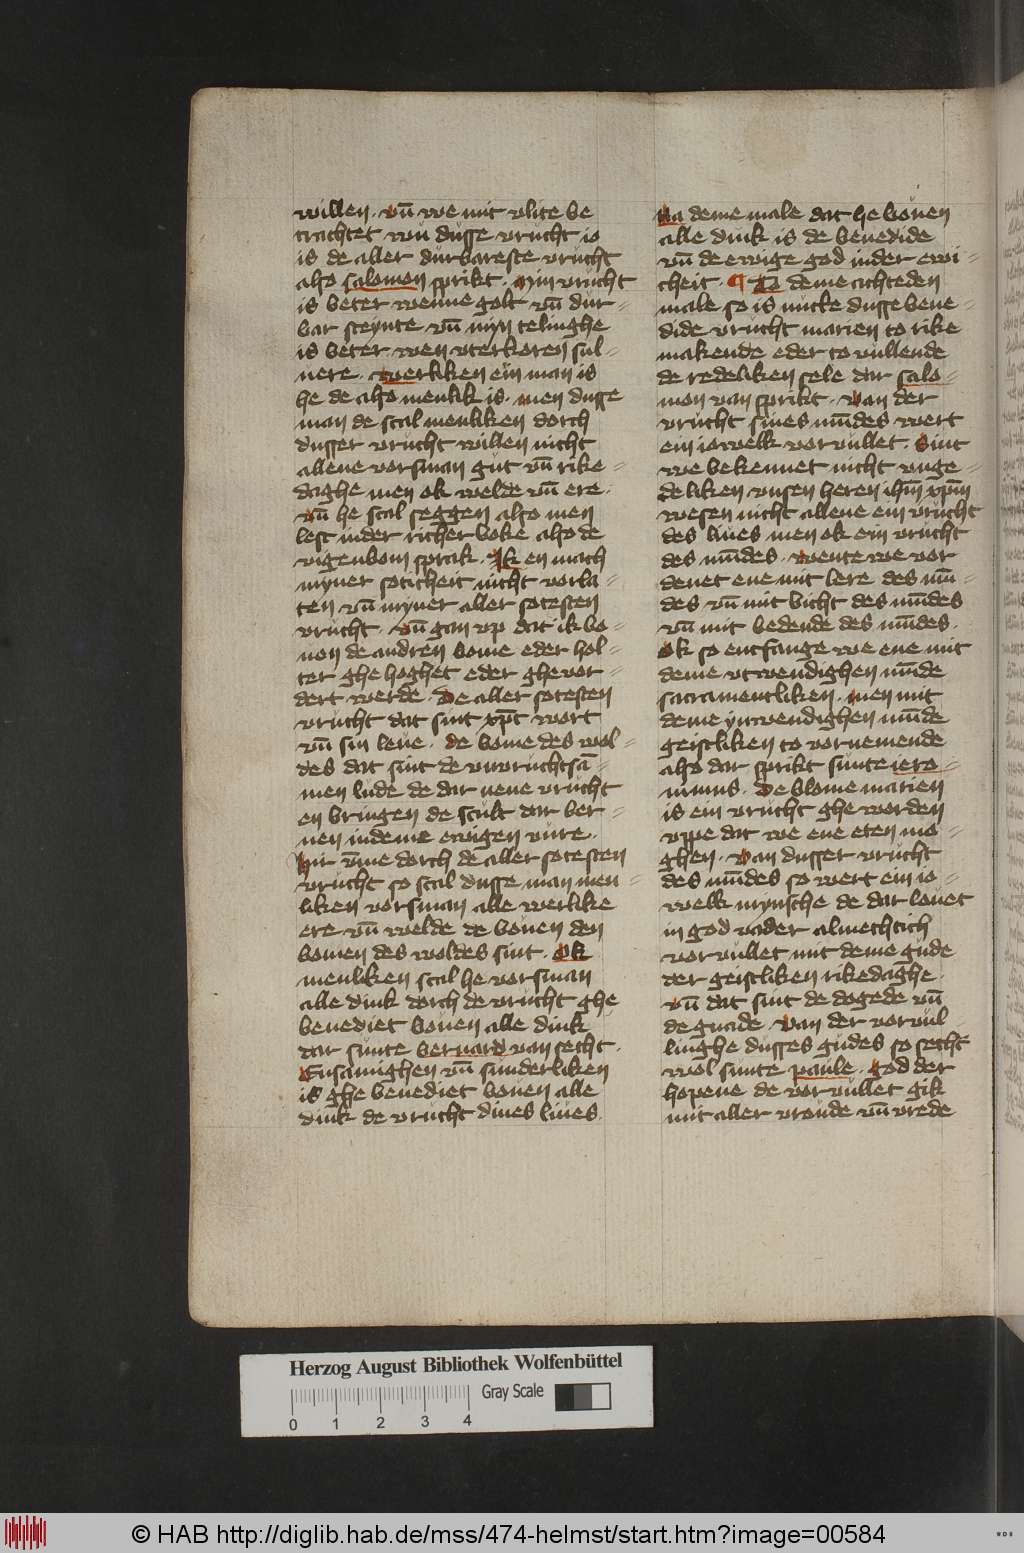 willen. vn̄ we mit vlite be
trachtet wu dusse vrucht io
is de aller durbareste vrucht
also salomon sprikt. Myn vrucht
is beter wenne golt vn̄ dur-
bar steynte vn̄ myn telinghe
is beter wen vterkoren sul-
uere. werliken ein man is
he de also menlik is. men dusse
man de scal menliken dorch
dusser vrucht willen nicht
allene vorsman gut vn̄ rike-
daghe men ok welde vn̄ ere.
vn̄ he scal seggen also men
lest inder richter boke also de
vigenbom sprak. Ik en mach
myner soticheit nicht vorla-
ten vn̄ myner aller sotesten
vrucht. vn̄ gan vp dat ik bo-
uen de andren bome eder hol-
ter ghe hoghet eder ghe vor-
dert werde. De aller sotesten
vrucht dat sint xp̄i wort
vn̄ sin leue. de bome des wol-
des dat sint de vnvruchtsā-
men lude de dar nene vrucht
en bringen de scult dar ber-
nen indeme ewigen vure.
Hir vm̄e dorch de aller sotesten
vrucht so scal dusse man men-
liken vorsman alle werlike
ere vn̄ welde de bouen den
bomen des woldes sint. Ok
menliken scal he vorsman
alle dink dorch de vrucht ghe
benediet bouen alle dink
dar sunte bernard van secht.
Ensamighen vn̄ sunderliken
is ghe benediet bouen alle
dink de vrucht dines liues.
Na deme male dat he bouen
alle dink is de benedide
vn̄ de ewige god inder ewi-
cheit. ¶ To deme achteden
male so is nutte dusse bene-
dide vrucht marien to rike
makende eder to vullende
de redeliken sele dar salo-
mon van sprikt. Van der
vrucht sines mūdes wert
ein iowelk vorvullet. Sint
we bekennet nicht vnge-
deliken vnsen heren ih̄m xp̄m
wesen nicht allene ein vrucht
des liues men ok ein vrucht
des mūdes. wente we vor
denet ene mit lere des mū-
des vn̄ mit bicht des mūdes
vn̄ mit bedende des mūdes.
Ok so entfange we ene mit
deme vtwendighen mūde
sacramentliken. men mit
deme ynwendighen mūde
geistliken to vornemende
also dar sprikt sunte iero-
nimus. De blome marien
is ein vrucht ghe worden
vppe dat we ene eten mo-
ghen. Van dusser vrucht
des mūdes so wert ein io-
welk mynsche de dar louet
in god vader almechtich
vorvullet mit deme gude
der geistliken rikedaghe.
vn̄ dat sint de dogede vn̄
de gnade. Van der vorvul
linghe dusses gudes so secht
wol sunte paule. God der
hopene de vorvullet gik
mit aller vronde vn̄ vrede
Herzog August Bibliothek Wolfenbüttel
Gray Scale
0 1 2 3 4
© HAB http://diglib.hab.de/mss/474-helmst/start.htm?image=00584